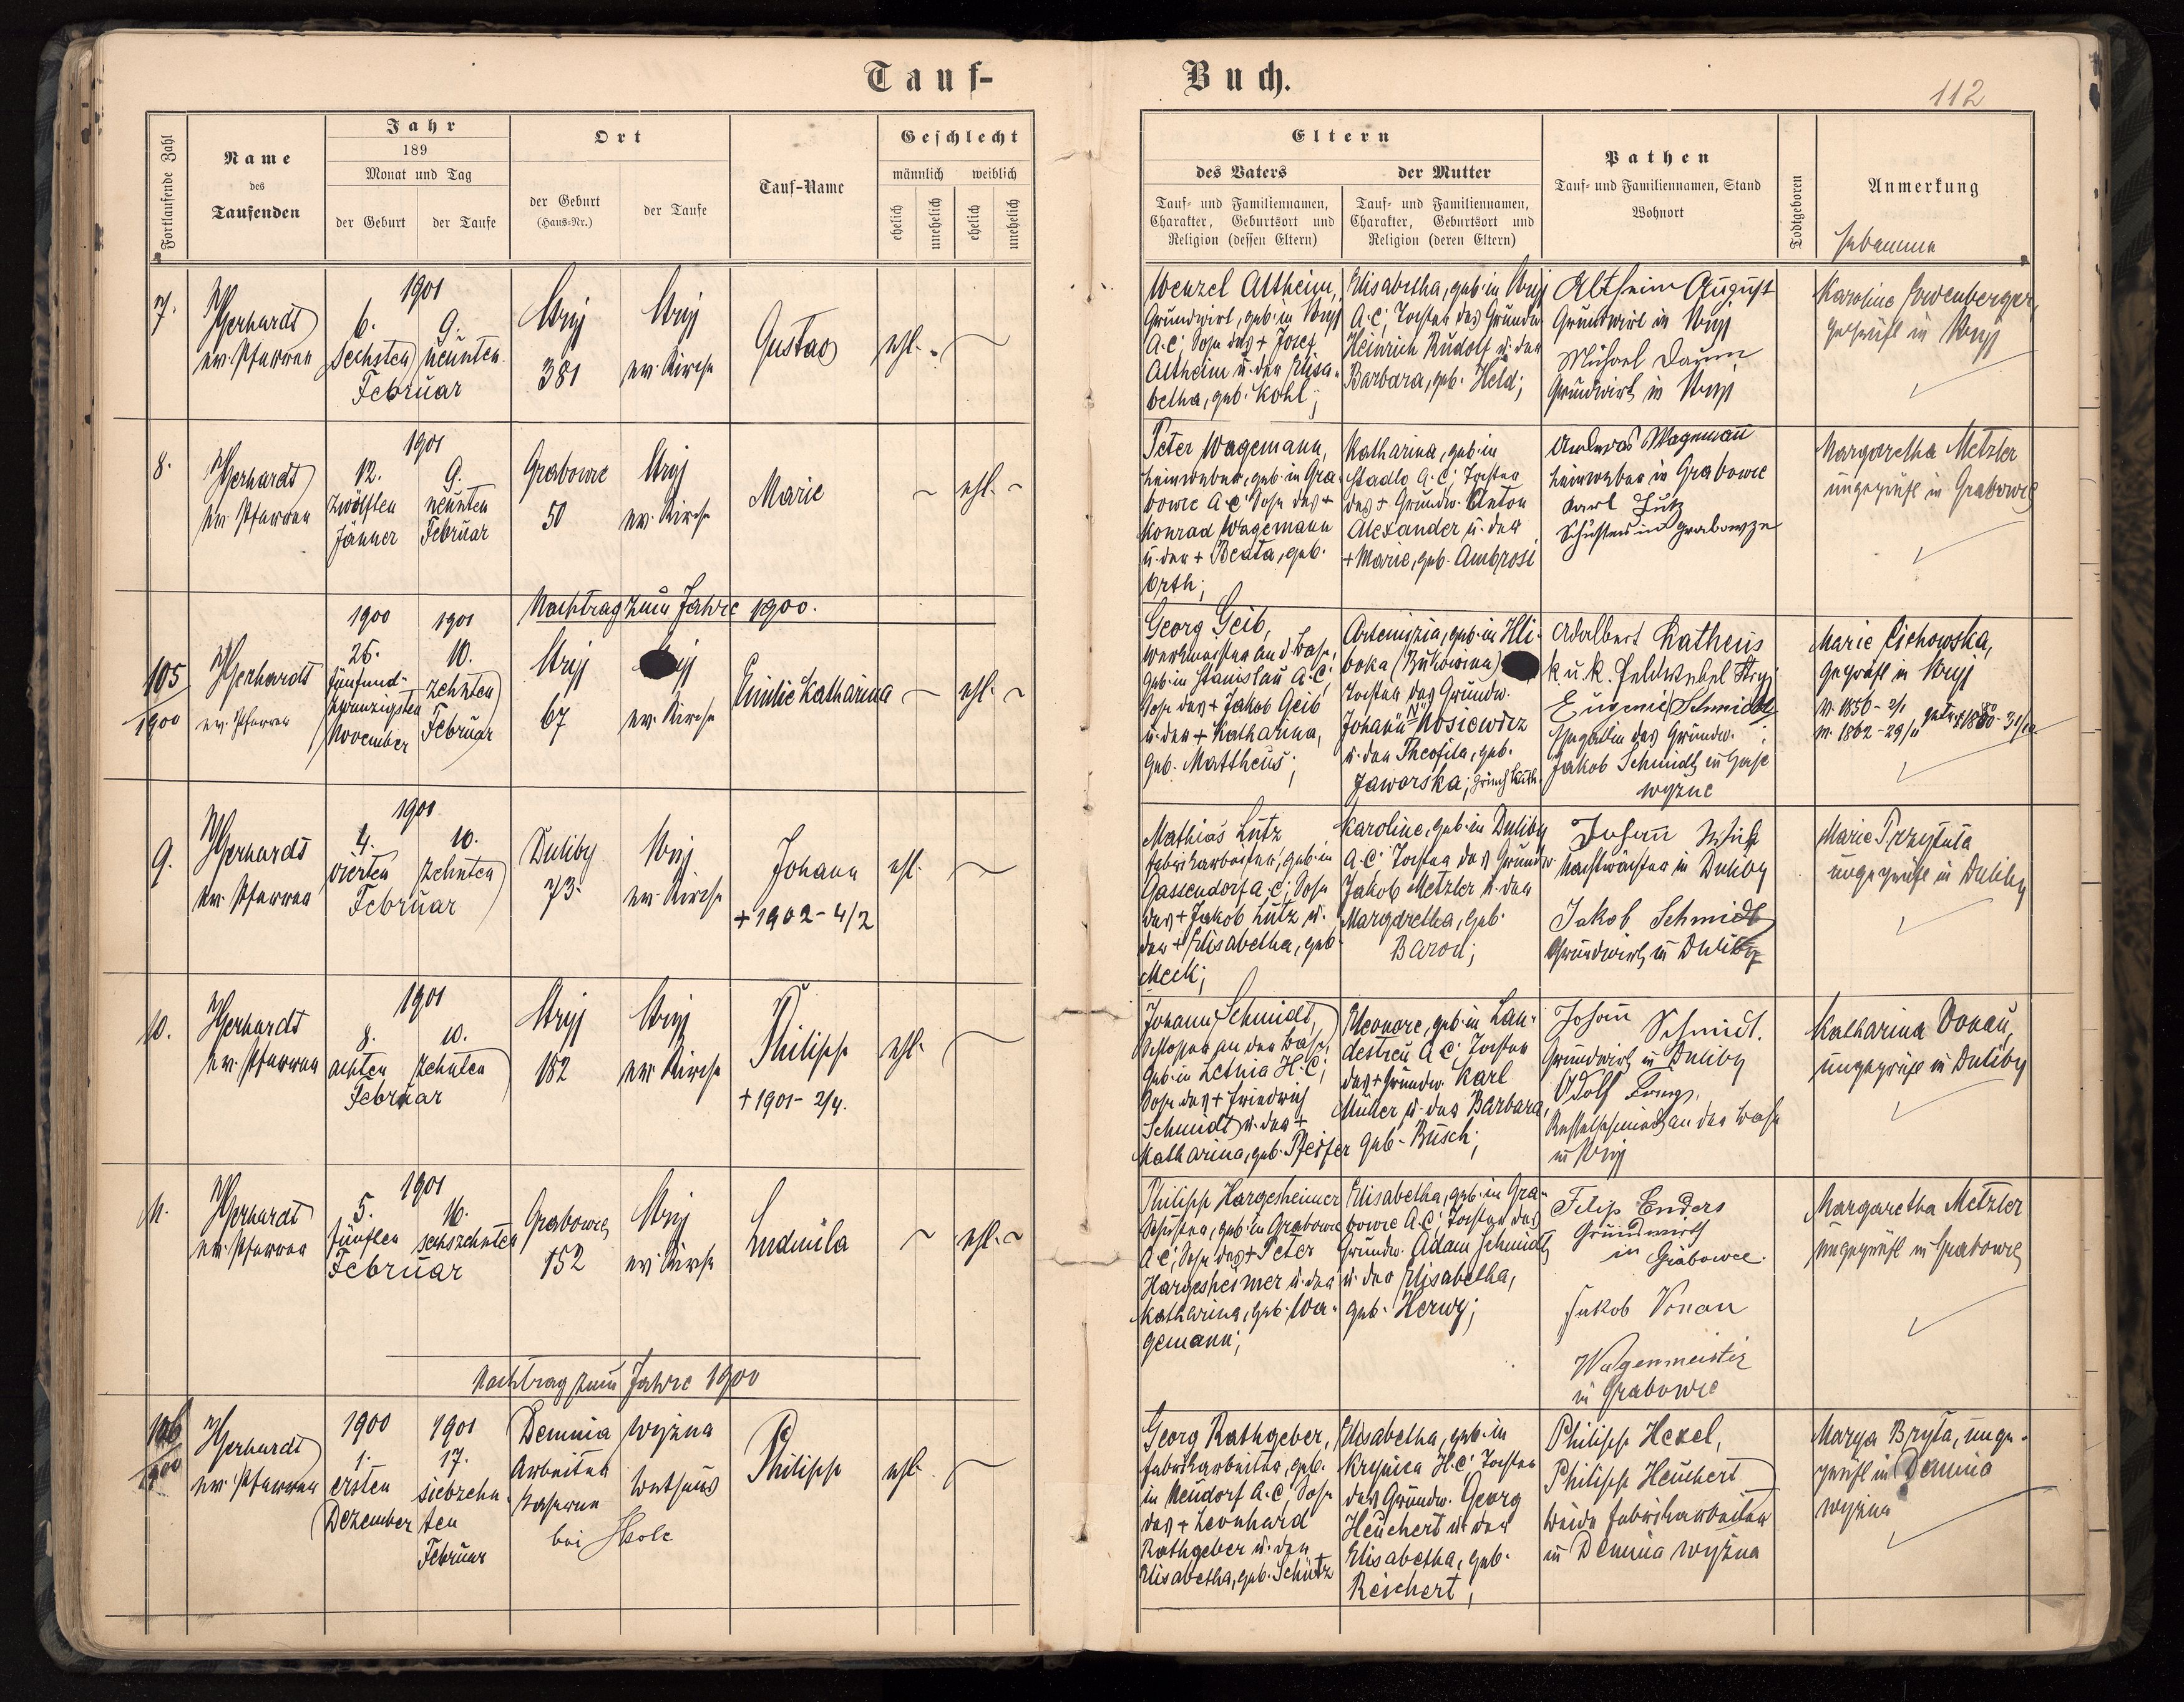 Tauf-
Buch.
112
Fortlaufende Zahl
Name
des
Taufenden
Jahr
189
Monat und Tag
der Geburt
der Taufe
Ort
der Geburt
(Haus-Nr.)
der Taufe
Tauf-Name
Geschlecht
männlich
weiblich
ehelich
unehelich
ehelich
unehelich
Eltern
des Vaters
der Mutter
Tauf- und Familiennamen,
Charakter, Geburtsort und
Religion (dessen Eltern)
Tauf- und Familiennamen,
Charakter, Geburtsort und
Religion (deren Eltern)
Pathen
Tauf- und Familiennamen, Stand
Wohnort
Todtgeboren
Anmerkung
Hebamme
7.
Gerhardt
ev. Pfarrer
1901
6.
sechsten
9.
neunten
Februar
Stryj
381
Stryj
ev. Kirche
Gustav
ehl.
Wenzel Altheim,
Grundwirt, geb. in Stryj
A.C; Sohn des + Josef
Altheim u. der Elisa-
betha, geb. Kohl;
Elisabetha, geb. in Stryj
A.C; Tochter des Grundw.
Heinrich Rudolf u. der
Barbara, geb. Held;
Altheim August
Grundwirt in Stryj
Michael Daum
Grundwirth in Stryj
Karoline
geprüft in Stryj
8.
Gerhardt
ev. Pfarrer
1901
12.
zwölften
Jänner
9.
neunten
Februar
Grabowce
50
Stryj
ev. Kirche
Marie
ehl.
Peter Wagemann,
Leinweber, geb. in Gra-
bowce A.C Sohn des +
Konrad Wagemann
u. der + Beata, geb.
Orth;
Katharina, geb. in
Stadlo A.C; Tochter
des + Grundw. Anton
Alexander u. der
+ Marie, geb. Ambrosi
Andreas Wagemann
Leinweber in Grabowce
Karl Lutz
Schuster in Grabowze
Margaretha Metzler
ungeprüft in Grabowce
Nachtrag zum Jahre 1900.
105
1900
Gerhardt
ev. Pfarrer
1900
25.
fünfund-
zwanzigsten
November
1901
10.
zehnten
Februar
Stryj
67
ev. Kirche
Emilie Katharina
ehl.
Georg Geib,
Werkmeister an d. Bahn,
geb. in Stanislau A.C;
Sohn des + Jakob Geib
u. der + Katharina,
geb. Mattheus;
Artemizia, geb. in Hli-
boka (Bukowina)
Tochter des Grundw.
Johann Nosiewicz
u. der Theofila, geb.
Jaworska; griech. kath.
Adalbert Katheus
k. u. k. Feldwebel Stryj
Eugenie Schmidt
Gegattin des Grundw.
Jakob Schmidt in
wyzne
Marie Cichowska,
geprüft in Stryj
9.
Gerhardt
ev. Pfarrer
1901
4.
vierten
10.
zehnten
Februar
Duliby
73.
Stryj
ev. Kirche
Johann
+ 1902 - 4/2
ehl.
Mathias Lutz
Fabrikarbeiter, geb. in
Gassendorf A.C; Sohn
des + Jakob Lutz u.
der + Elisabetha, geb.
Meck;
Karoline, geb. in Duliby
A.C; Tochter des Grundw
Jakob Metzler u. der
Margaretha, geb.
Baron;
Johann
Nachtwächter in Duliby
Jakob Schmidt
Grundwirth in Duliby
Marie Przystula
ungeprüft in Duliby
10.
Gerhardt
ev. Pfarrer
1901
8.
achten
10.
zehnten
Februar
Stryj
182
Stryj
ev. Kirche
Philipp
+ 1901 - 2/4.
ehl.
Johann Schmidt,
Schlosser an der Bahn,
geb. in Letnia H.C;
Sohn des + Friedrich
Schmidt u. der +
Katharina, geb. Pfeifer
Eleonore, geb. in Lan-
destreu A.C; Tochter
des + Grundw. Karl
Müller u. der Barbara,
geb. Busch;
Johann Schmidt.
Grundwirth in Duliby
Adolf
Kesselschmied an der Bahn
in Stryj
Katharina Donau,
ungeprüft in Duliby
11.
Gerhardt
ev. Pfarrer
1901
5.
fünften
16.
sechszehnten
Februar
Grabowce
152
Stryj
ev. Kirche
Ludmila
ehl.
Philipp Hargesheimer
Schuster, geb. in Grabowce
A.C; Sohn des + Peter
Hargesheimer u. der
Katharina, geb. Wa-
gemann;
Elisabetha, geb. in Gra-
bowce A.C; Tochter des
Grundw. Adam Schmidt
u. der Elisabetha,
geb. Herwy;
Filip Enders
Grundwirth
in Grabowce.
Jakob Vonau
Wagenmeister
in Grabowce
Margaretha Metzler
ungeprüft in Grabowce
Nachtrag zum Jahre 1900
106
1900
Gerhardt
ev. Pfarrer
1900
1.
ersten
Dezember
1901
17.
siebzehn-
ten
Februar
Demnia wyżna
Arbeiter
kaserne
Bethaus
bei Skole
Philipp
ehl.
Georg Rathgeber,
Fabrikarbeiter, geb.
in Neudorf A.C; Sohn
des + Leonhard
Rathgeber u. der
Elisabetha, geb. Schütz
Elisabetha, geb. in
Krynica H.C; Tochter
des Grundw. Georg
Heuchert u. der
Elisabetha, geb.
Reichert;
Philipp Hexel,
Philipp Heuchert
beide Fabrikarbeiter
in Demnia wyżna
Marya Bryta, unge-
prüft in Demnia
wyżna